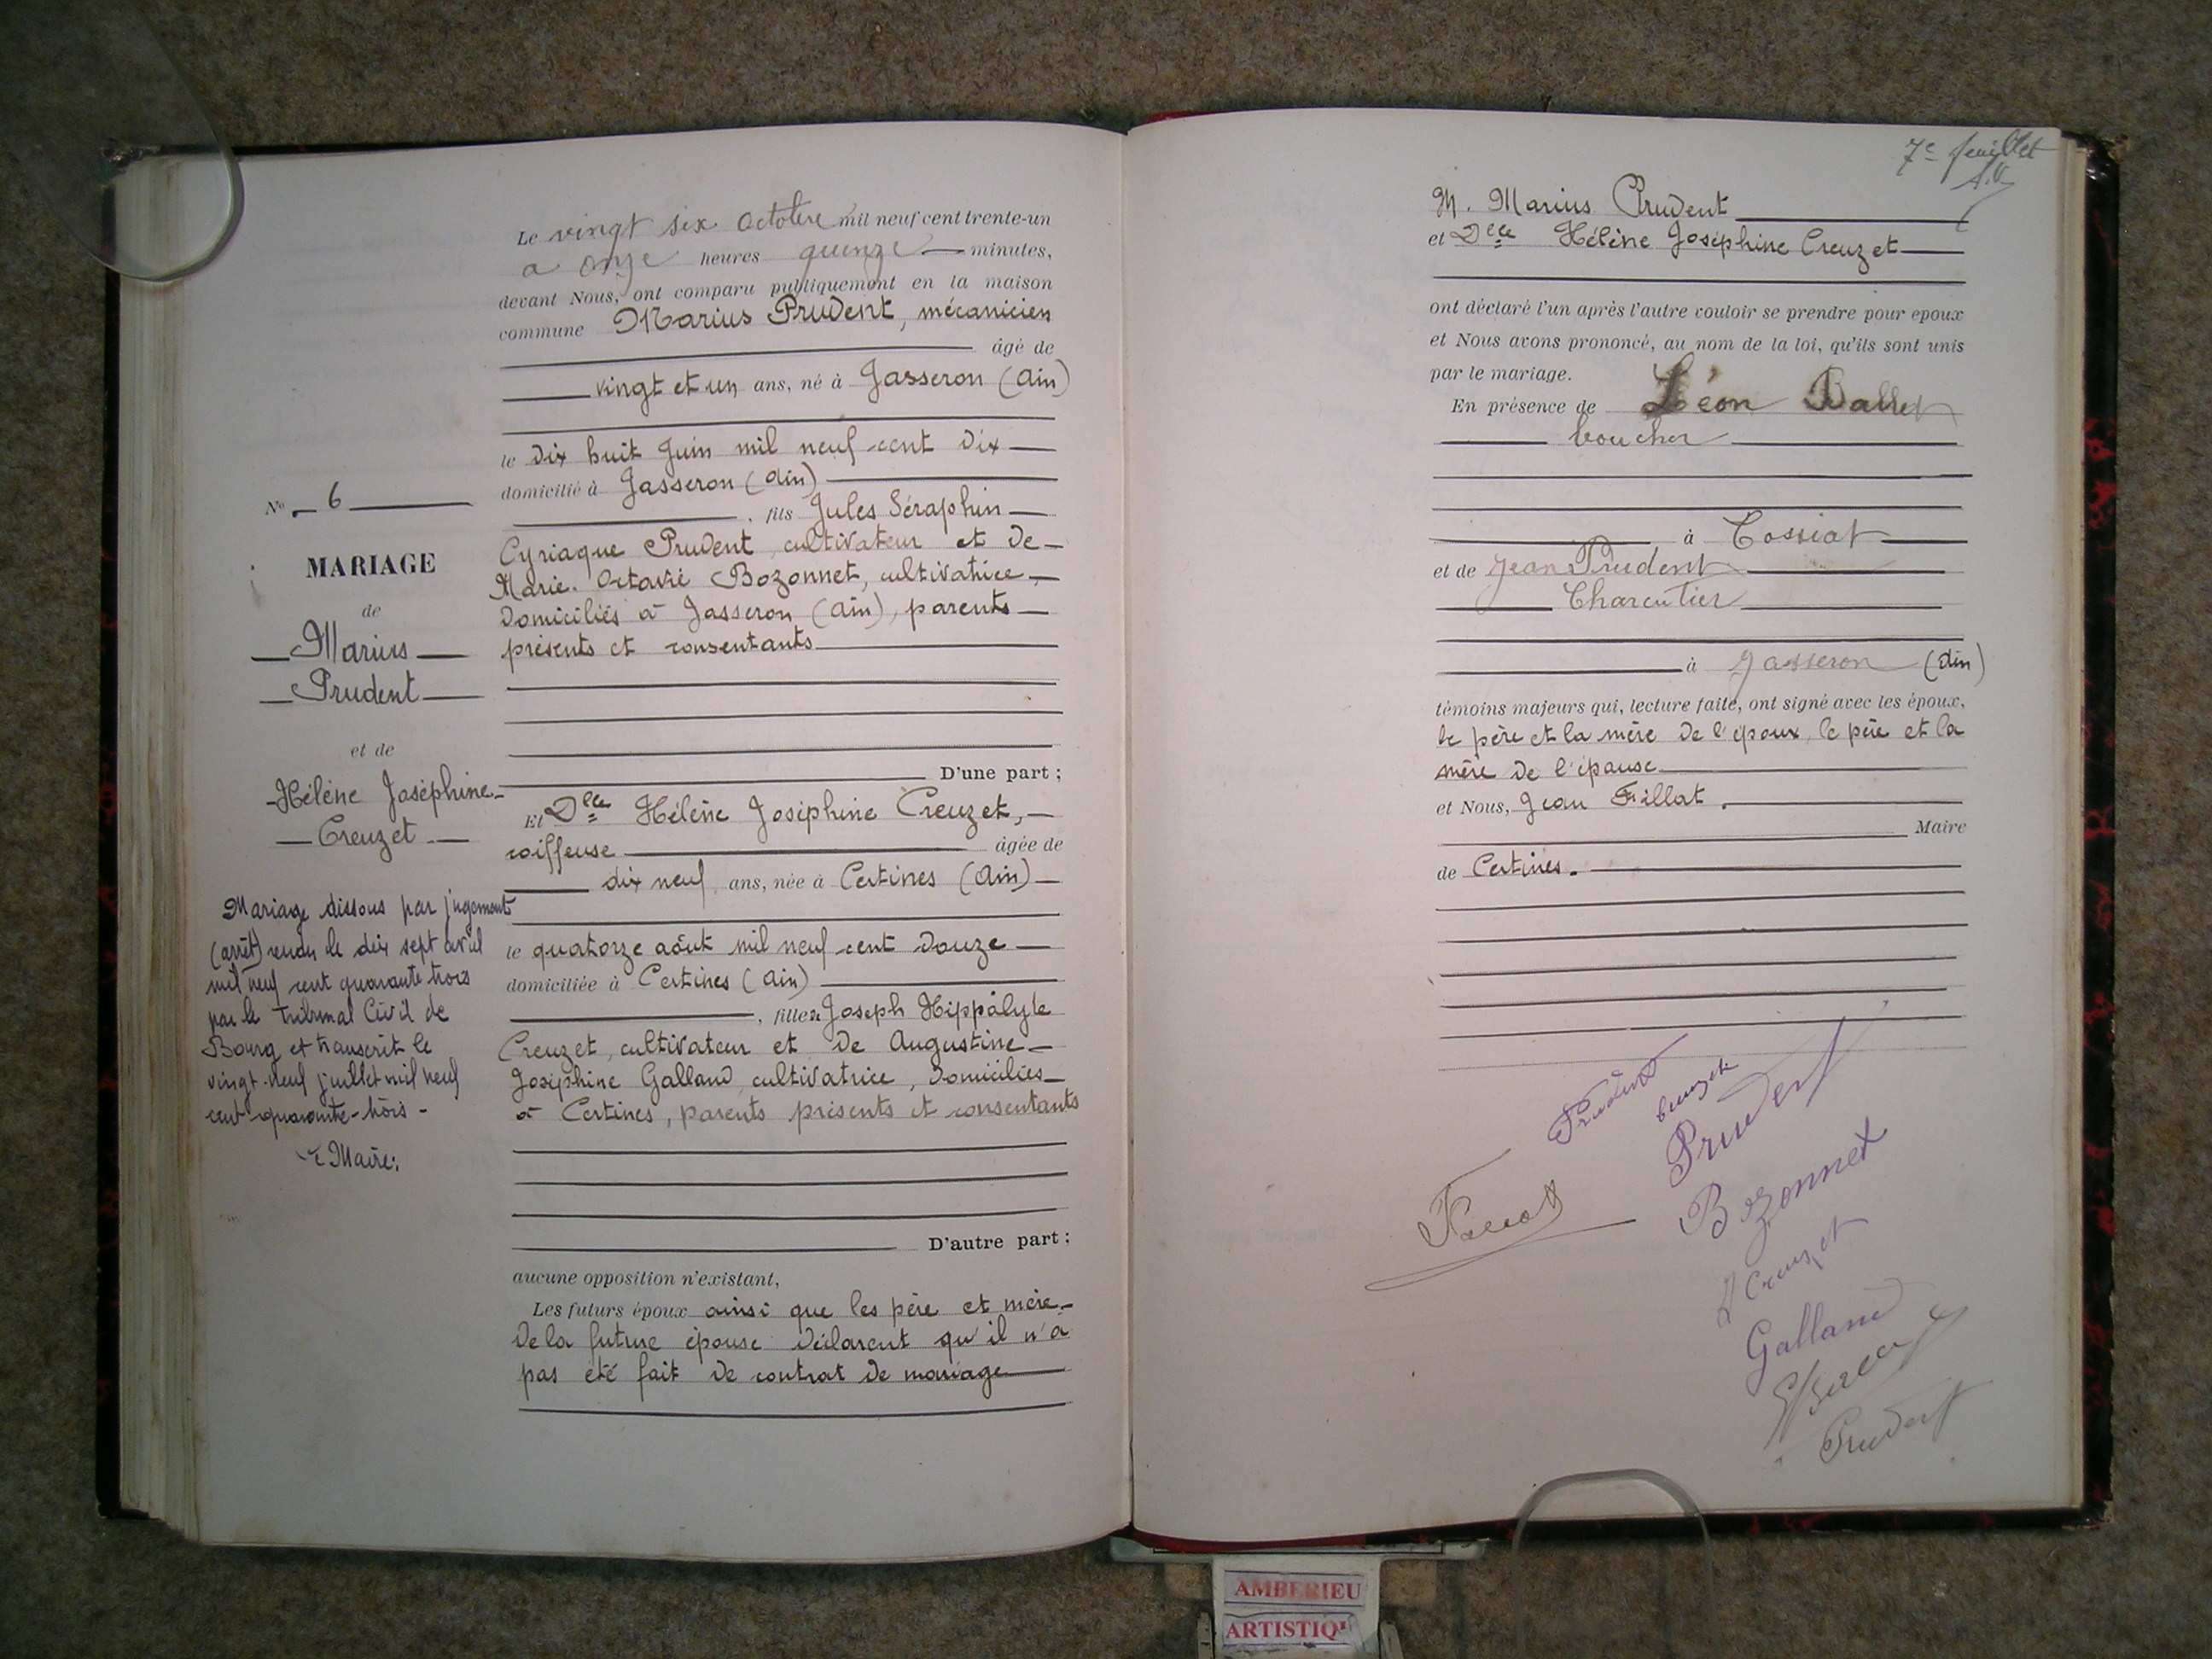 Le vingt six Octobre mil neuf cent trente-un
a onze heures quinze minutes,
devant Nous, ont comparu publiquement en la maison
commune Marius Prudent, mécanicien
âgé de
vingt et un ans, né à Jasseron (Ain)
le dix huit Juin mil neuf cent dix
domicilié à Jasseron (Ain)
, fils Jules Séraphin
Cyriaque Prudent, cultivateur et de
Marie. Octavie Bozonnet, cultivatrice
domiciliés à Jasseron (Ain), parents
présents et consentants
D'une part ;
Et Delle Hélène Joséphine Creuzet,
coiffeuse âgée de
dix neuf ans, née à Certines (Ain)
le quatorze août mil neuf cent douze
domiciliée à Certines (Ain)
, fille Joseph Hippolyte
Creuzet, cultivateur et de Augustine
Joséphine Galland cultivatrice, domiciliés
à Certines, parents présents et consentants
D'autre part ;
aucune opposition n'existant,
Les futurs époux ainsi que les père et mère
de la future épouse déclarent qu'il n'a
pas été fait de contrat de mariage
No 6
MARIAGE
de
Marius
Prudent
et de
Hélène Joséphine
Creuzet
Mariage dissous par jugement
(arrêt) rendu le dix sept avril
mil neuf cent quarante trois
par le Tribunal Civil de
Bourg et transcrit le
vingt-neuf juillet mil neuf
cent quarante-trois -
Le Maire:
7e feuillet
M. Marius Prudent
et Delle Hélène Joséphine Creuzet
ont déclaré l'un après l'autre vouloir se prendre pour epoux
et Nous avons prononcé, au nom de la loi, qu'ils sont unis
par le mariage.
En présence de Léon Ballet
boucher
à Tossiat
et de Jean Prudent
Charcutier
à Jasseron (Ain)
témoins majeurs qui, lecture faite, ont signé avec les époux,
le père et la mère de l'époux, le père et la
mère de l'épouse
et Nous, Jean Fillat.
Maire
de Certines.
Prudent
Creuzet
Prudent
Bozonnet
Creuzet
Galland
Prudent
AMBERIEU
ARTISTIQ